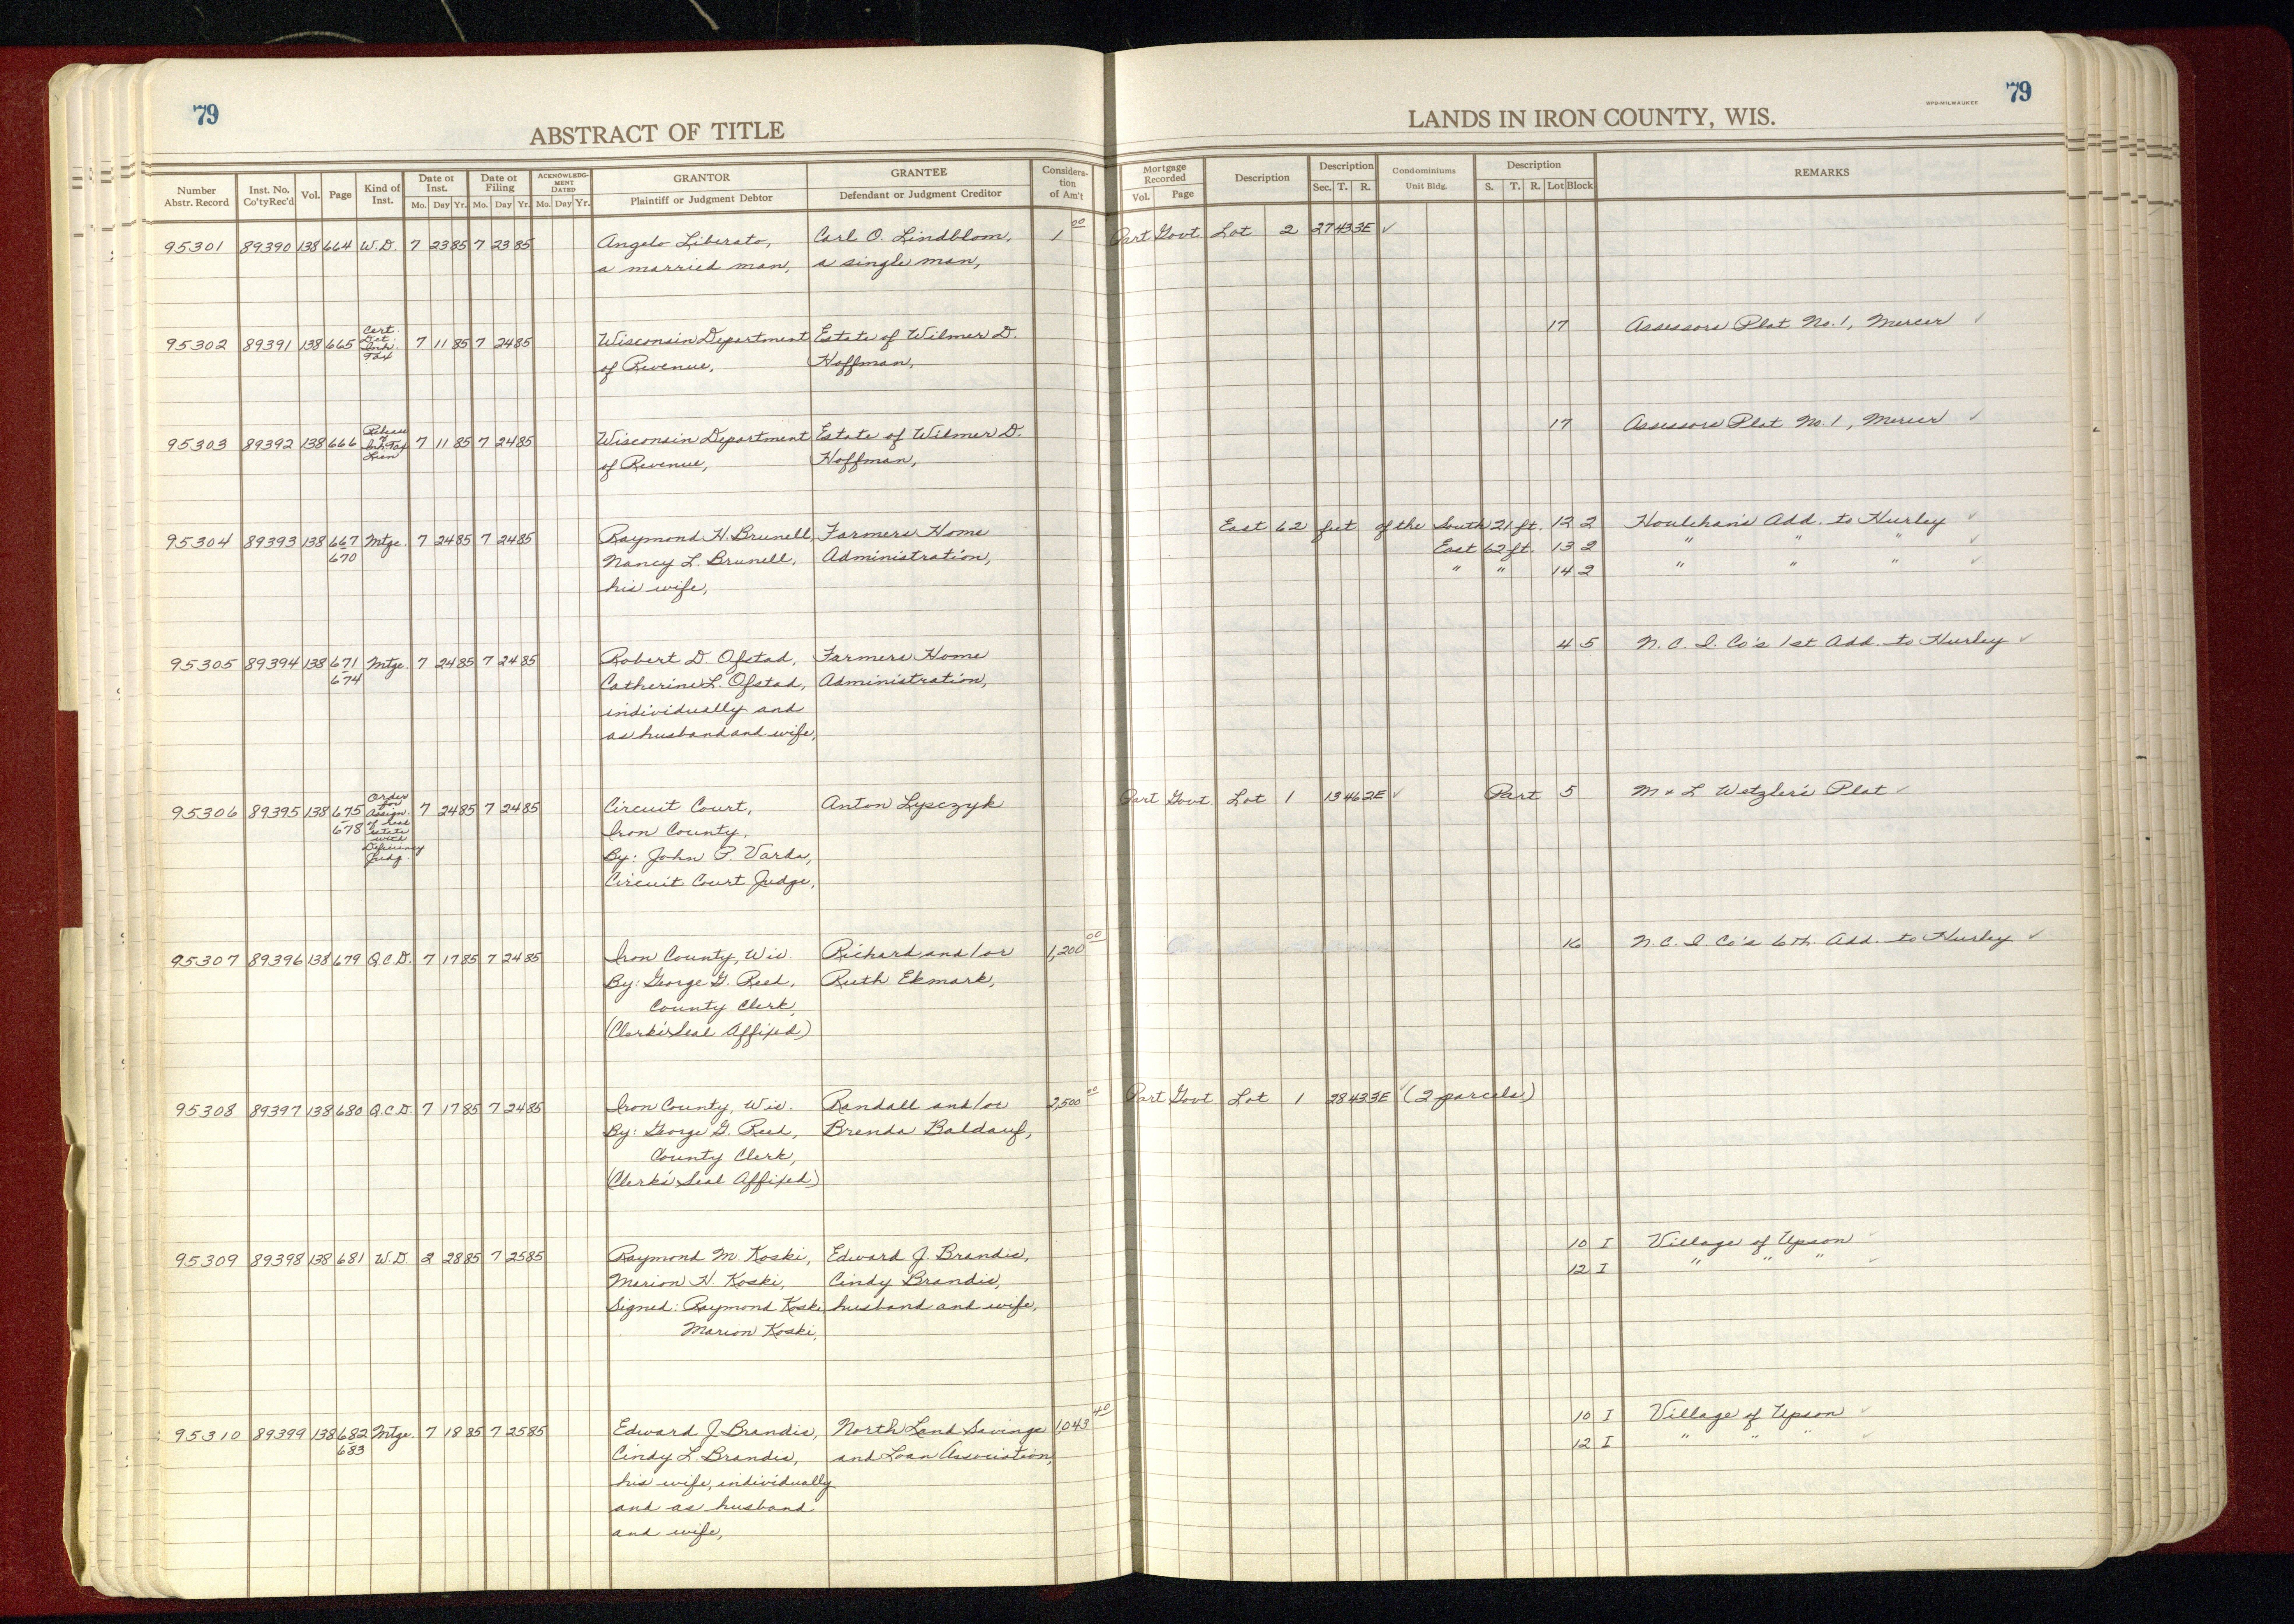 79
ABSTRACT OF TITLE
Number Abstr. Record
Inst. No. Co'tyRec'd
Vol.
Page
Kind of Inst.
Date of Inst. Mo. Day Yr.
Date of Filing Mo. Day Yr.
ACKNOWLEDGMENT DATED Mo. Day Yr.
GRANTOR Plaintiff or Judgment Debtor
GRANTEE Defendant or Judgment Creditor
Considera-tion of Am't
79
WPB-MILWAUKEE
LANDS IN IRON COUNTY, WIS.
Mortgage Recorded Vol. Page
Description
Description Sec. T. R.
Condominiums Unit Bldg.
Description S. T. R. Lot Block
REMARKS
95301 89390 138 664 W.D. 7 23 85 7 23 85 Angelo Liberato, Carl O. Lindblom, 1 00 Part Govt. Lot 2 27 43 3E ✓
a married man, a single man,
95302 89391 138 665 Cert. Det. Inh. Tax 7 11 85 7 24 85 Wisconsin Department Estate of Wilmer D. 17 Assessors Plat No. 1, Mercer ✓
of Revenue, Hoffman,
95303 89392 138 666 Release of Inh. Tax Lien 7 11 85 7 24 85 Wisconsin Department Estate of Wilmer D. 17 Assessors Plat No. 1, Mercer ✓
of Revenue, Hoffman,
95304 89393 138 667 670 Mtge. 7 24 85 7 24 85 Raymond H. Brunell, Farmers Home East 62 feet of the South 21 ft. 12 2 Houlehan's Add. to Hurley ✓
Nancy L. Brunell, Administration, East 62 ft. 13 2 " " " ✓
his wife, " " 14 2 " " " ✓
95305 89394 138 671 674 Mtge. 7 24 85 7 24 85 Robert D. Ofstad, Farmers Home 4 5 N. C. I. Co's 1st Add. to Hurley ✓
Catherine L. Ofstad, Administration,
individually and
as husband and wife,
95306 89395 138 675 678 Order for Assign. of Real estate with Deficiency Judg. 7 24 85 7 24 85 Circuit Court, Anton Lysczyk Part Govt. Lot 1 13 46 2E ✓ Part 5 M & L Wetzler's Plat ✓
Iron County,
By: John P. Varda,
Circuit Court Judge,
95307 89396 138 679 Q.C.D. 7 17 85 7 24 85 Iron County, Wis. Richard and/or 1,200 00 16 N. C. I Co's 6th. Add. to Hurley ✓
By: George G. Reed, Ruth Ekmark,
County Clerk,
(Clerk's Seal Affixed)
95308 89397 138 680 Q.C.D. 7 17 85 7 24 85 Iron County, Wis. Randall and/or 2,500 00 Part Govt Lot 1 28 43 3E ✓ (2 parcels)
By: George G. Reed, Brenda Baldauf,
County Clerk,
(Clerk's Seal Affixed)
95309 89398 138 681 W.D. 2 28 85 7 25 85 Raymond M. Koski, Edward J. Brandis, 10 I Village of Upson ✓
Marion H. Koski, Cindy Brandis, 12 I " " " ✓
Signed: Raymond Koski, husband and wife,
Marion Koski,
95310 89399 138 682 683 Mtge. 7 18 85 7 25 85 Edward J. Brandis, North Land Savings 1,043 40 10 I Village of Upson ✓
Cindy L. Brandis, and Loan Association, 12 I " " " ✓
his wife, individually
and as husband
and wife,